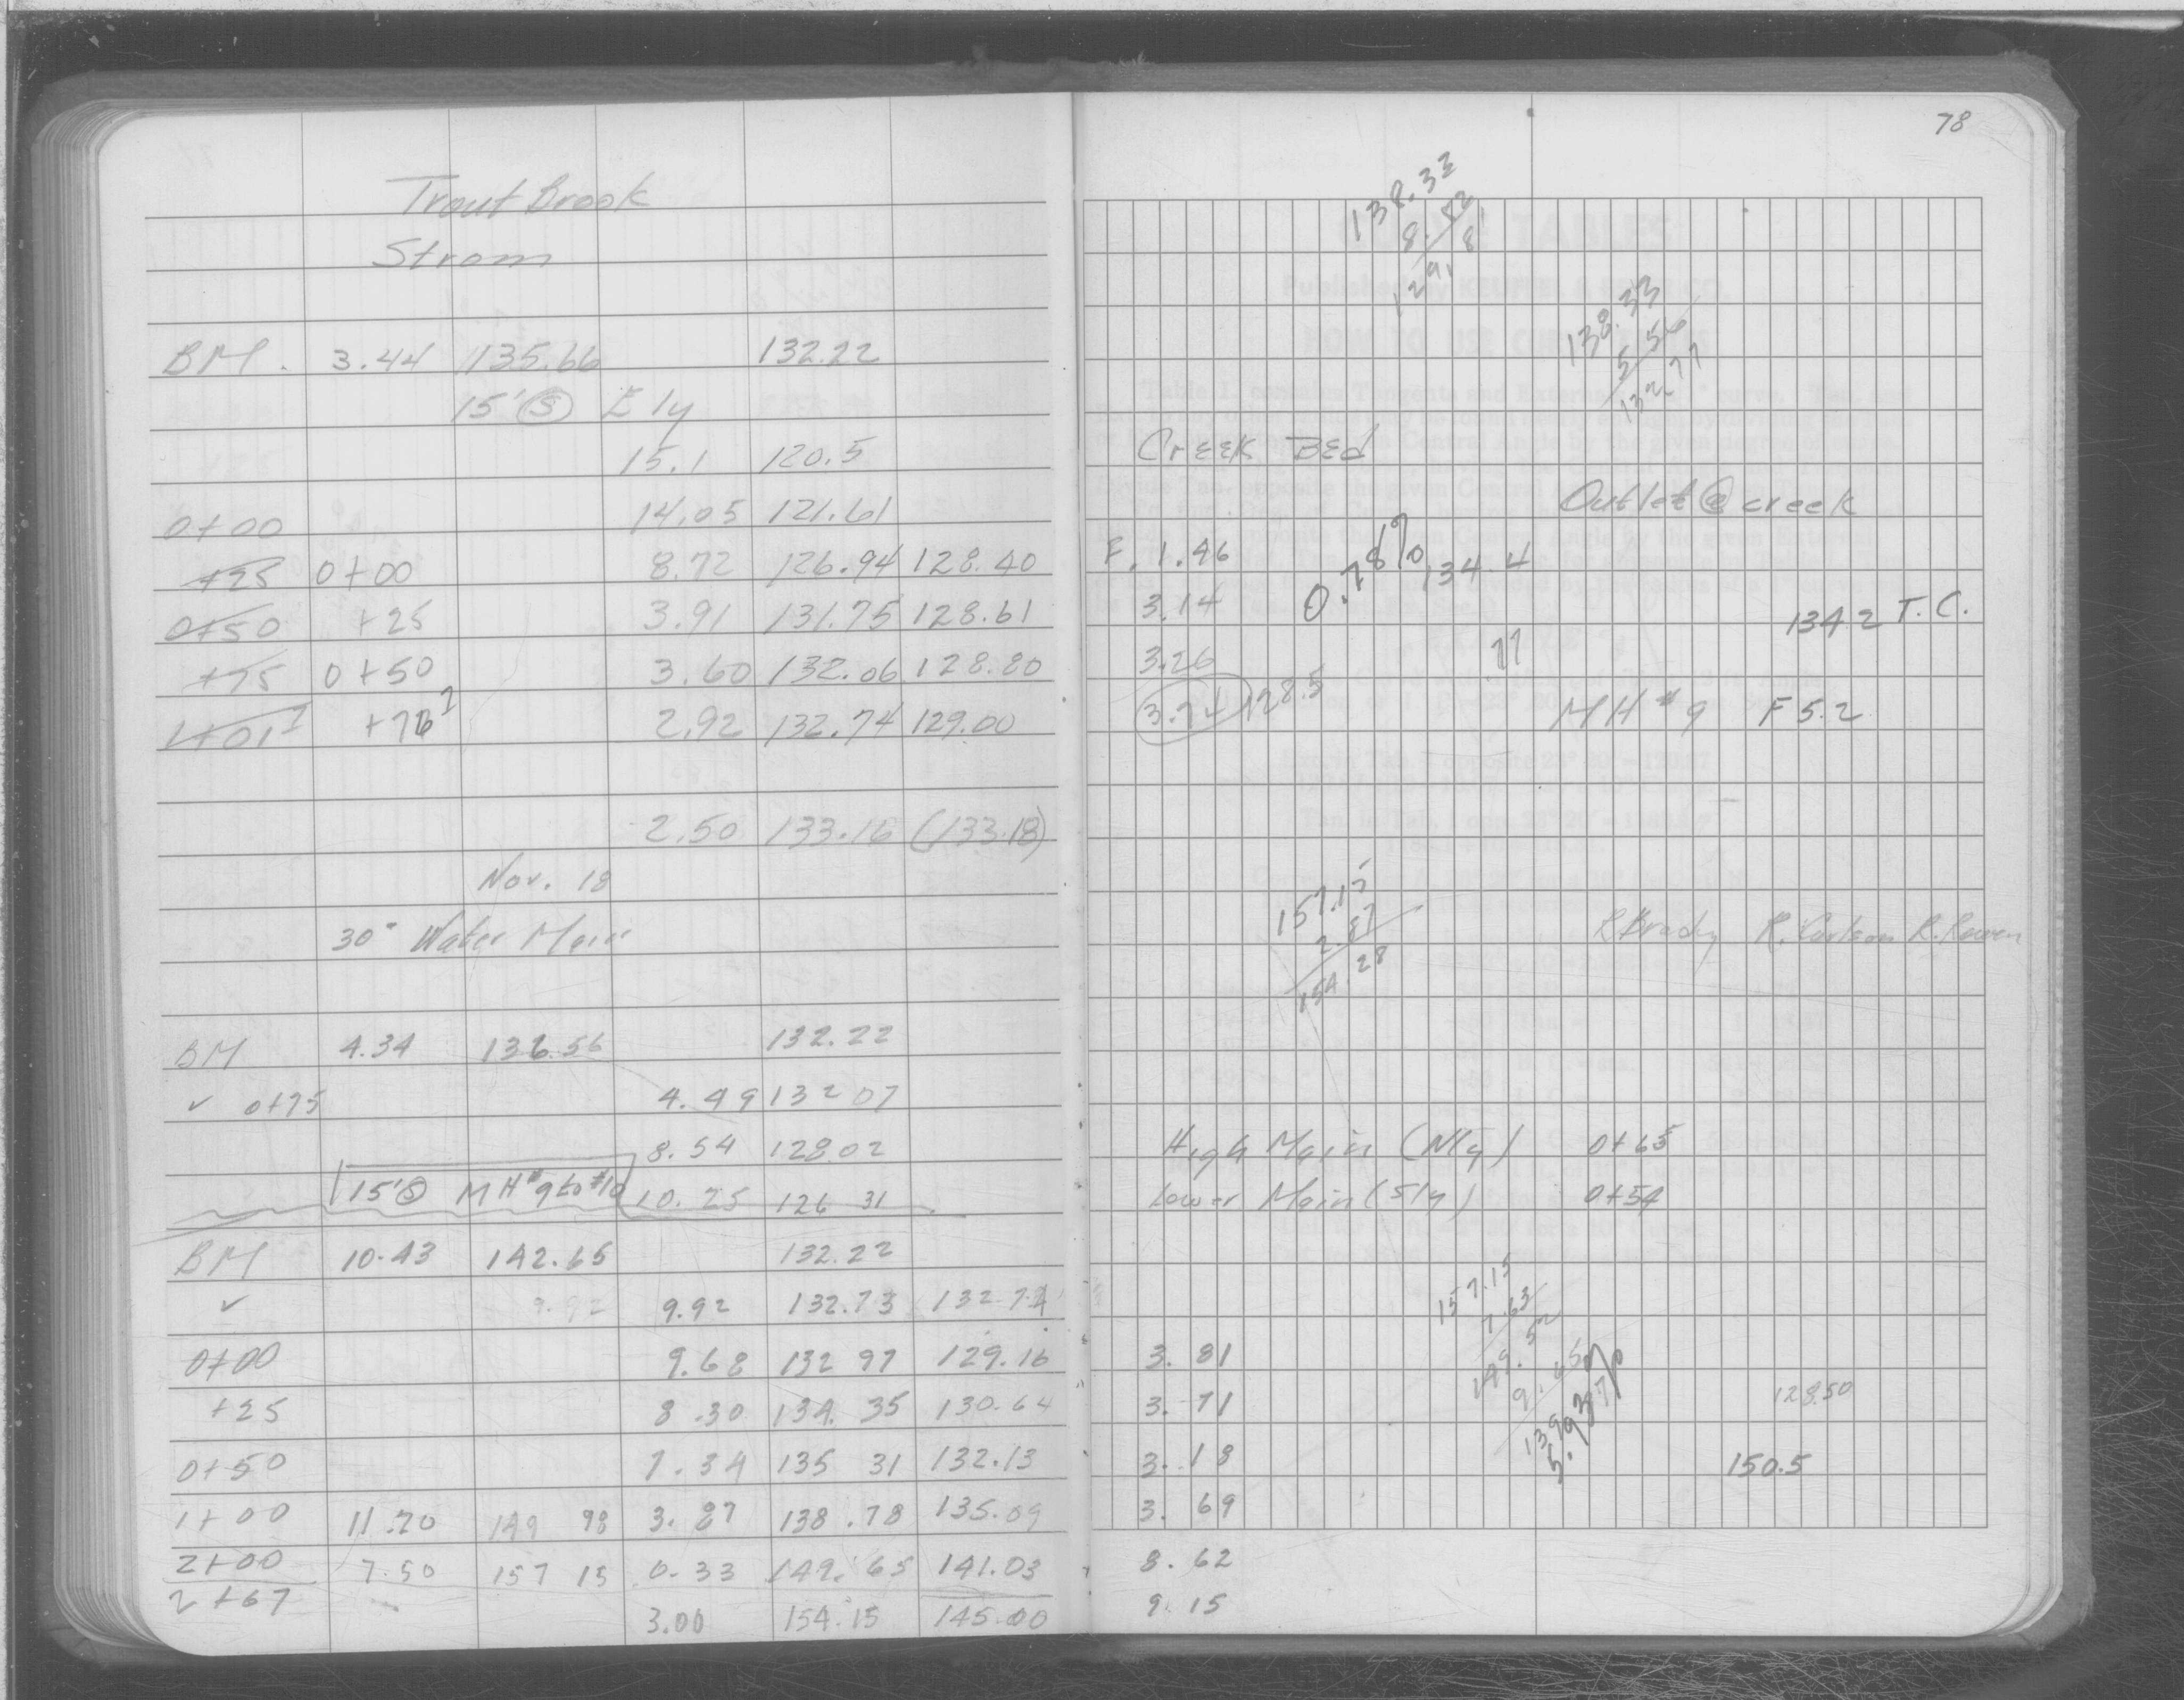 78
Trout Brook
Strom
BM. 3.44 135.66 132.22
15' Ⓢ Ely
15.1 120.5
0+00 14.05 121.61
+25 0+00 8.72 126.94 128.40
0+50 +25 3.91 131.75 128.61
+75 0+50 3.60 132.06 128.80
1+01¹ +76¹ 2.92 132.74 129.00
2.50 133.16 (133.18)
Nov. 18
30" Water Main
BM 4.34 136.56 132.22
✓ 0+75 4.49 132 07
8.54 128.02
15' Ⓢ MH #9 to #10 10.25 126 31
BM 10.43 142.65 132.22
✓ 9.92 9.92 132.73 132 74
0+00 9.68 132 97 129.16
+25 8.30 134.35 130.64
0+50 7.34 135 31 132.13
1+00 11.20 149 98 3.87 138.78 135.09
2+00 7.50 157 15 0.33 149.65 141.03
2+67 3.00 154.15 145.00
138.33
8.52
129.81
138.33
5.56
132.77
Creek Bed
Outlet @ creek
F. 1.46 0.78% 134.4
3.14 134.2 T.C.
3.26 77
3.74 128.5 MH #9 F 5.2
157.15
2.87
154.28
R Brady R. Carlson R.
High Main (Nly) 0+65
Lower Main (Sly) 0+54
157.15
7.63
149.52
9.65
139
5.937%
3.81
3.71 128.50
3.18 150.5
3.69
8.62
9.15